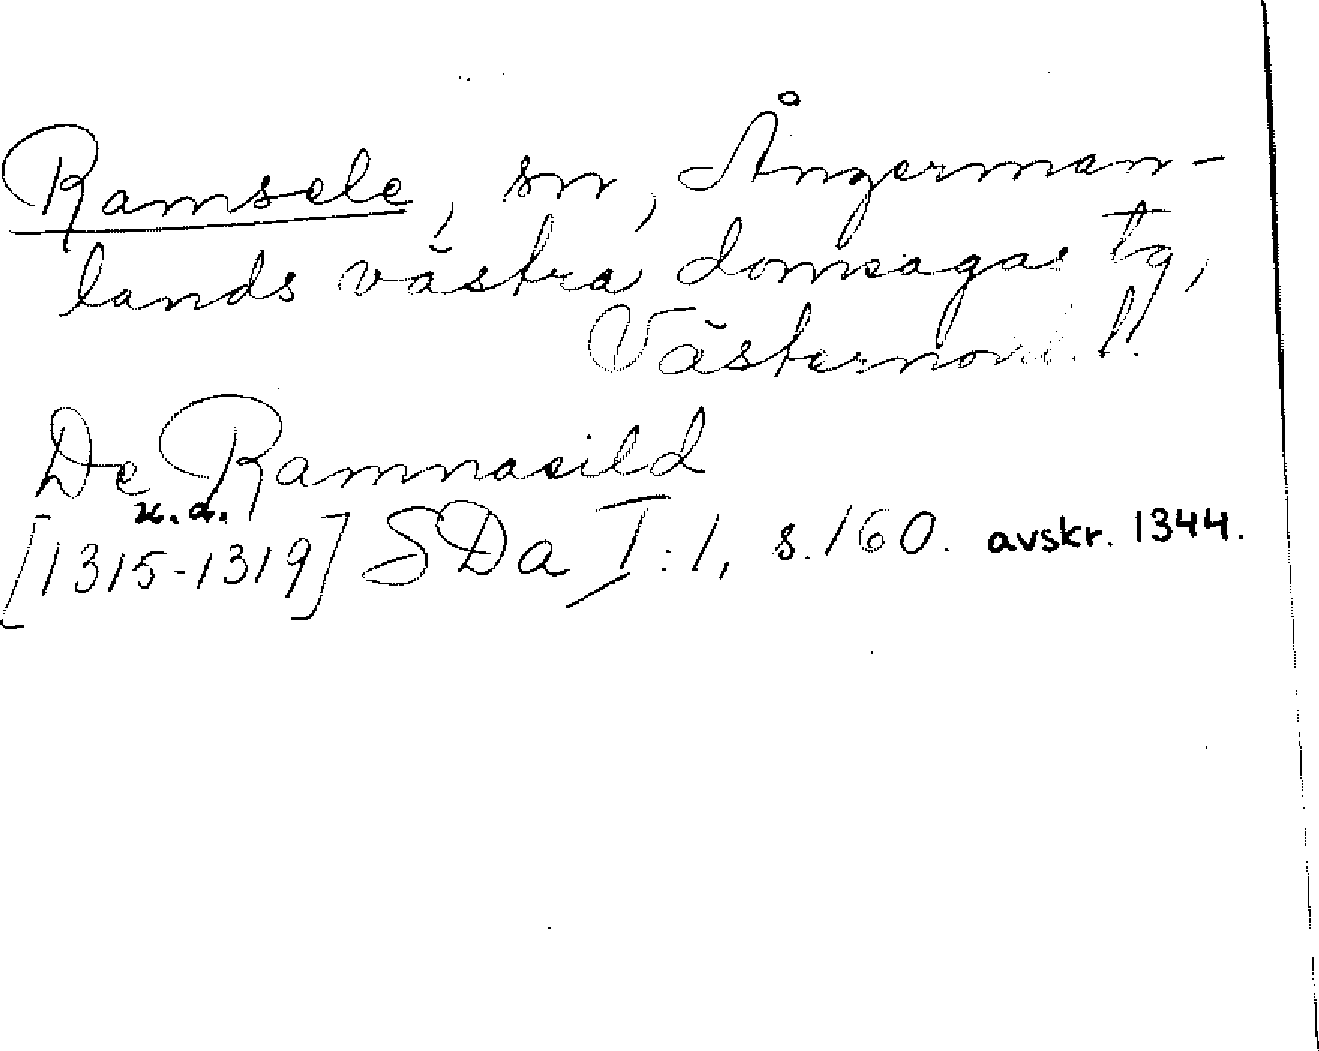 Ramsele, sn, Ångerman-
lands västra domsagas tg,
Västernorrl. l.
De Ramnasild
u.å.
[1315-1319] SDa I:1, s. 160. avskr. 1344.